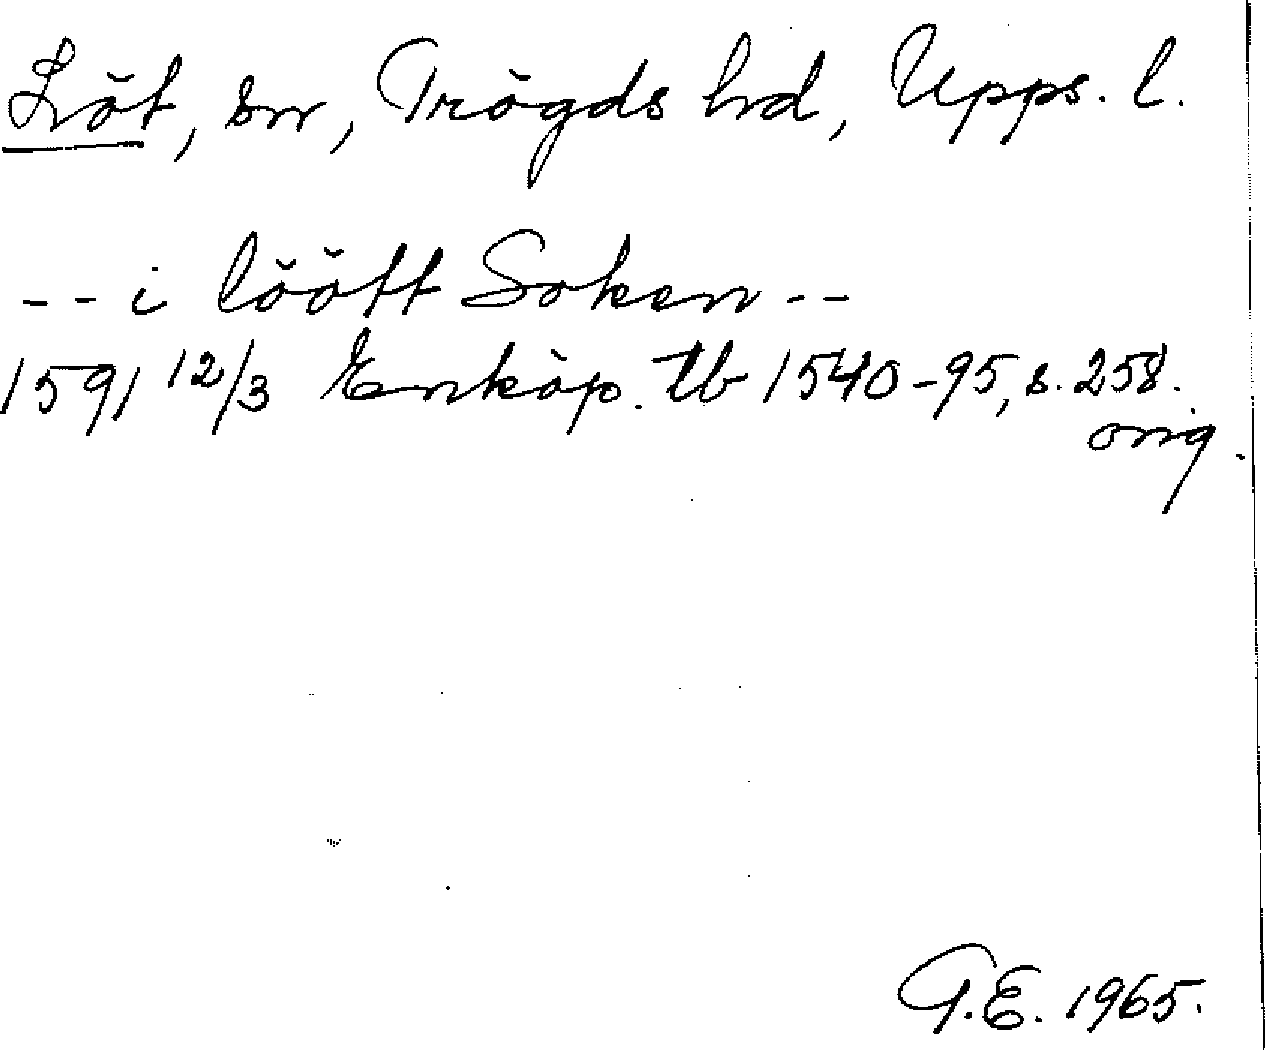 Löt, sn, Trögds hd, Upps. l.
-- i löött Soken --
1591 12/3 Enköp. tb 1540-95, s. 258.
orig.
G.E. 1965.